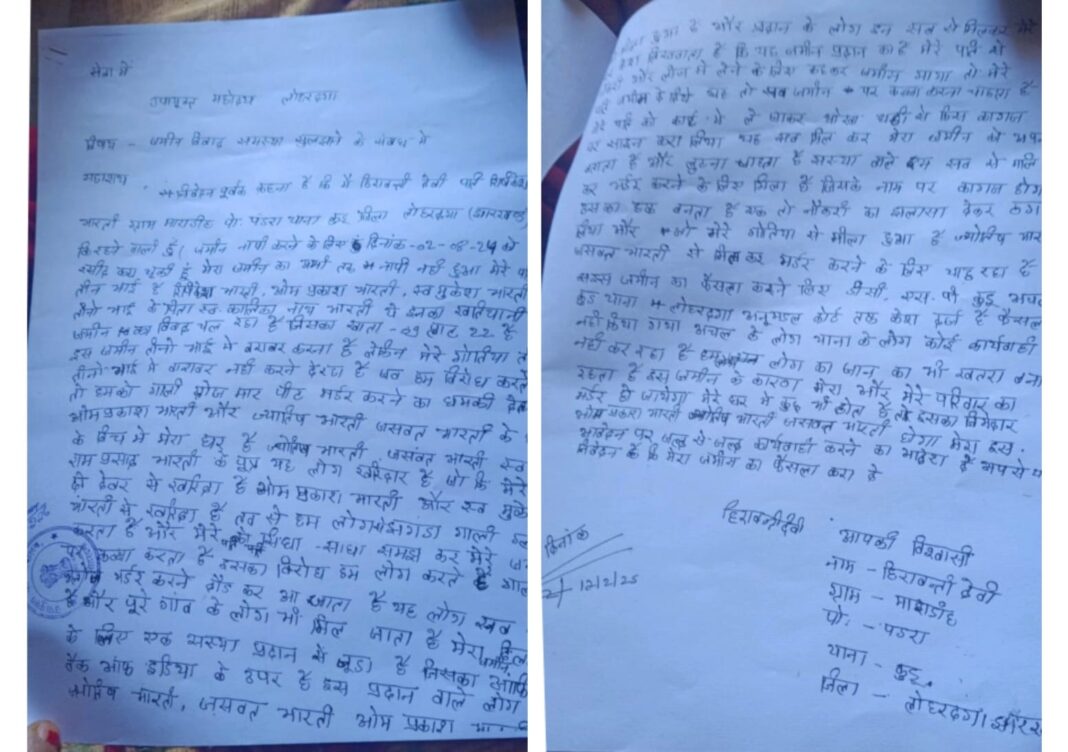 सेवा में
उपायुक्त महोदय लोहरदगा
विषय - जमीन विवाद समस्या सुलझाने के संबंध में
महाशय
निवेदन पूर्वक कहना है कि मैं हिरावन्ती देवी पति
भारती ग्राम माराडीह पो. पंडरा थाना कुडू जिला लोहरदगा (झारखण्ड)
कि रहने वाली हूँ। जमीन नापी करने के लिए दिनांक-02-08-24 को
रसीद करा चुकी हूं मेरा जमीन का अभी तक नापी नहीं हुआ मेरे
तीन भाई है भारती, ओम प्रकाश भारती, स्व मुकेश भारती
तीनो भाई के पिता स्व कालिका नाथ भारती थे इनका खतियानी
जमीन का विवाद चल रहा है जिसका खाता - 29 प्लॉट 22 है
इस जमीन तीनो भाई में बराबर करना है लेकिन मेरे गोतिया
तीनो भाई में बराबर नहीं करने दे रहा है जब हम विरोध करते
तो हमको गाली गलौज मार पीट मर्डर करने का धमकी देता
ओम प्रकाश भारती और ज्योतिष भारती जसवंत भारती के
के बिच में मेरा घर है ज्योतिष भारती, जसवंत भारती स्व
राम प्रसाद भारती के पुत्र यह लोग खरीदार है जो कि मेरे
ही देवर से खरिदा है ओम प्रकाश भारती और स्व मुकेश
भारती से खरिदा है तब से हम लोग से झगड़ा गाली
करता है और मेरे पति को सिधा - साधा समझ कर मेरे
पर कब्जा करता है इसका विरोध हम लोग करते हैं
मर्डर करने दौड़ कर आ जाता है यह लोग सब
है और पूरे गांव के लोग भी मिल जाता है मेरा
के लिए एक संस्था प्रदान से जुड़ा है जिसका
बैंक ऑफ इंडिया के उपर है इस प्रदान वाले लोग
ज्योतिष भारती, जसवंत भारती ओम प्रकाश
हुआ है और प्रदान के लोग इन सब से मिलकर मेरे
है कि यह जमीन प्रदान का है मेरे पति से
और लीज में लेने के लिए कहकर जमीन मांगा तो मेरे
यह तो सब जमीन पर कब्जा करना चाहता है
मेरे पति को कार्ड में ले जाकर धोखा धड़ी से किस कागज
पर साइन करा लिया यह सब मिल कर मेरा जमीन को
है और लुटना चाहता है संस्था वाले हम सब से
कर मर्डर करने के लिए मिला है जिसके नाम पर कागज होगा
इसका हक बनता है एक तो नौकरी का झलासा देकर ठग
लिया और जो मेरे गोतिया से मीला हुआ है ज्योतिष
जसवंत भारती से मिल कर मर्डर करने के लिए चाह रहा है
जमीन का फैसला करने लिए डी.सी. एस.पी कुडू अंचल
कुडू थाना लोहरदगा अनुमंडल कोर्ट तक केश दर्ज है
नहीं किया गया अंचल के लोग थाना के लोग कोई कार्यवाही
नहीं कर रहा है हम लोग का जान का भी खतरा बना
रहता है इस जमीन के कारण मेरा और मेरे परिवार का
मर्डर हो जायेगा मेरे घर में कुछ भी होता है तो इसका जिमेदार
ओम प्रकाश भारती ज्योतिष भारती जसवंत भारती होगा मेरा इस
आवेदन पर जल्द से जल्द कार्यवाही करने का आदेश दें आपसे
निवेदन है कि मेरा जमीन का फैसला करा दे
हिरावन्ती देवी
दिनांक
12/2/25
आपकी विश्वासी
नाम - हिरावन्ती देवी
ग्राम - माराडीह
पो. - पंडरा
थाना - कुडू
जिला - लोहरदगा